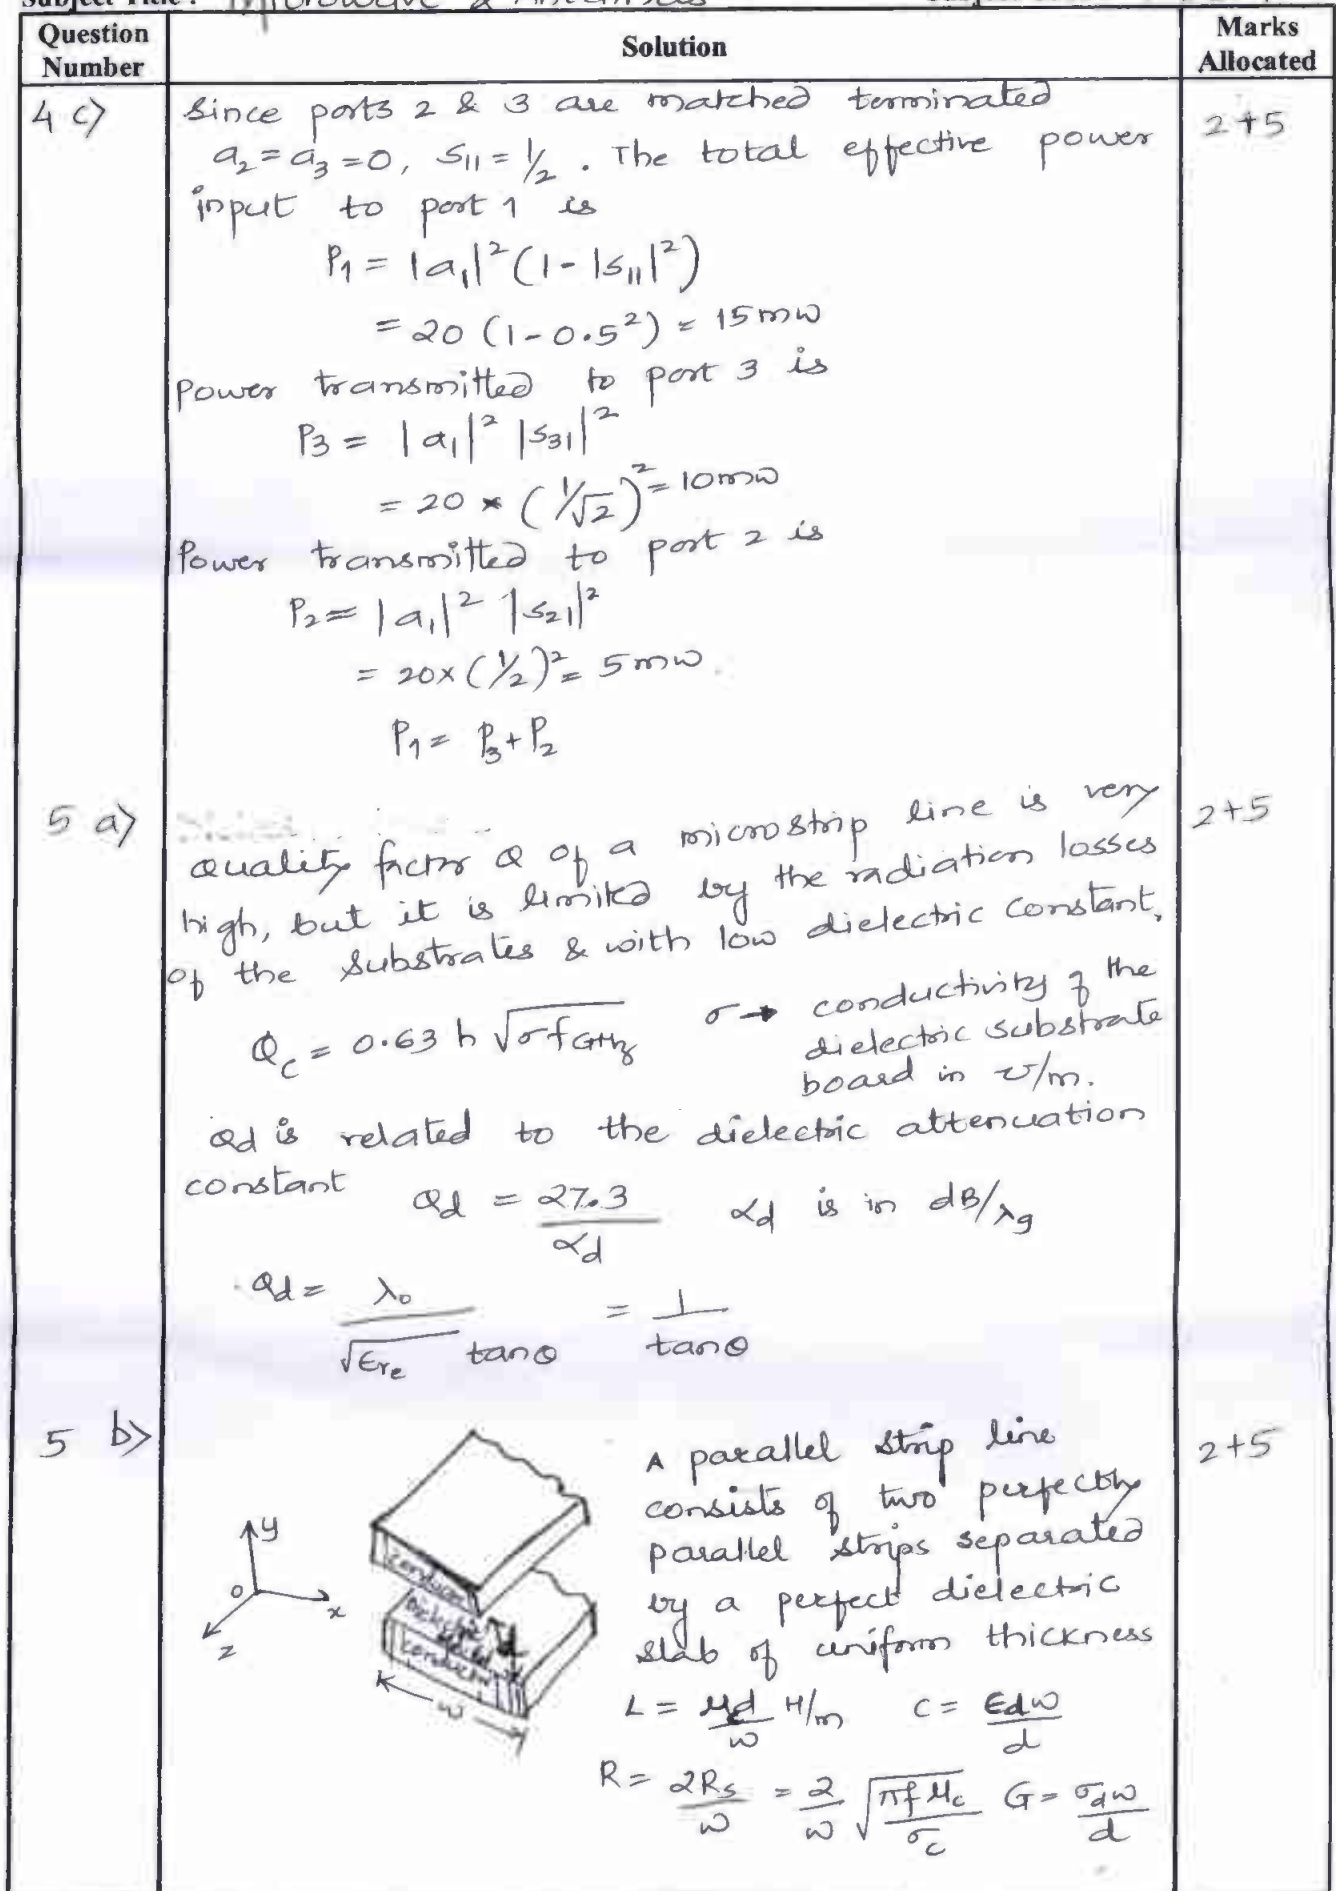 Microwave & Antennas
Question Number
Solution
Marks Allocated
4 c)
2+5
Since ports 2 & 3 are matched terminated
a₂ = a₃ = 0, S₁₁ = 1/2 . The total effective power
input to port 1 is
P₁ = |a₁|² (1 - |S₁₁|²)
= 20 (1 - 0.5²) = 15 mw
Power transmitted to port 3 is
P₃ = |a₁|² |S₃₁|²
= 20 * (1/√2)² = 10mw
Power transmitted to port 2 is
P₂ = |a₁|² |S₂₁|²
= 20 x (1/2)² = 5 mw.
P₁ = P₃ + P₂
5 a)
2+5
Quality factor Q of a microstrip line is very
high, but it is limited by the radiation losses
of the substrates & with low dielectric constant,
Q_c = 0.63 h √(σ f GHz)
σ → conductivity of the
dielectric substrate
board in ℧/m.
Qd is related to the dielectric attenuation
constant Qd = 27.3/αd αd is in dB/λg
Qd = λ₀/(√εre tanθ) = 1/tanθ
5 b)
2+5
y
o
x
z
conductor
Dielectric
conductor
w
A parallel strip line
consists of two perfectly
parallel strips separated
by a perfect dielectric
slab of uniform thickness
L = μcd/w H/m C = εdw/d
R = 2Rs/w = 2/w √(πf μc/σc) G = σdw/d